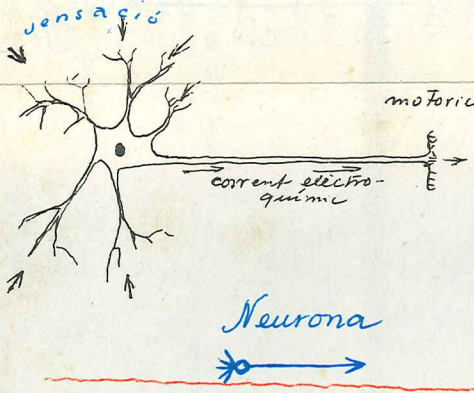 sensació
motoric
corrent electro-
químic
Neurona